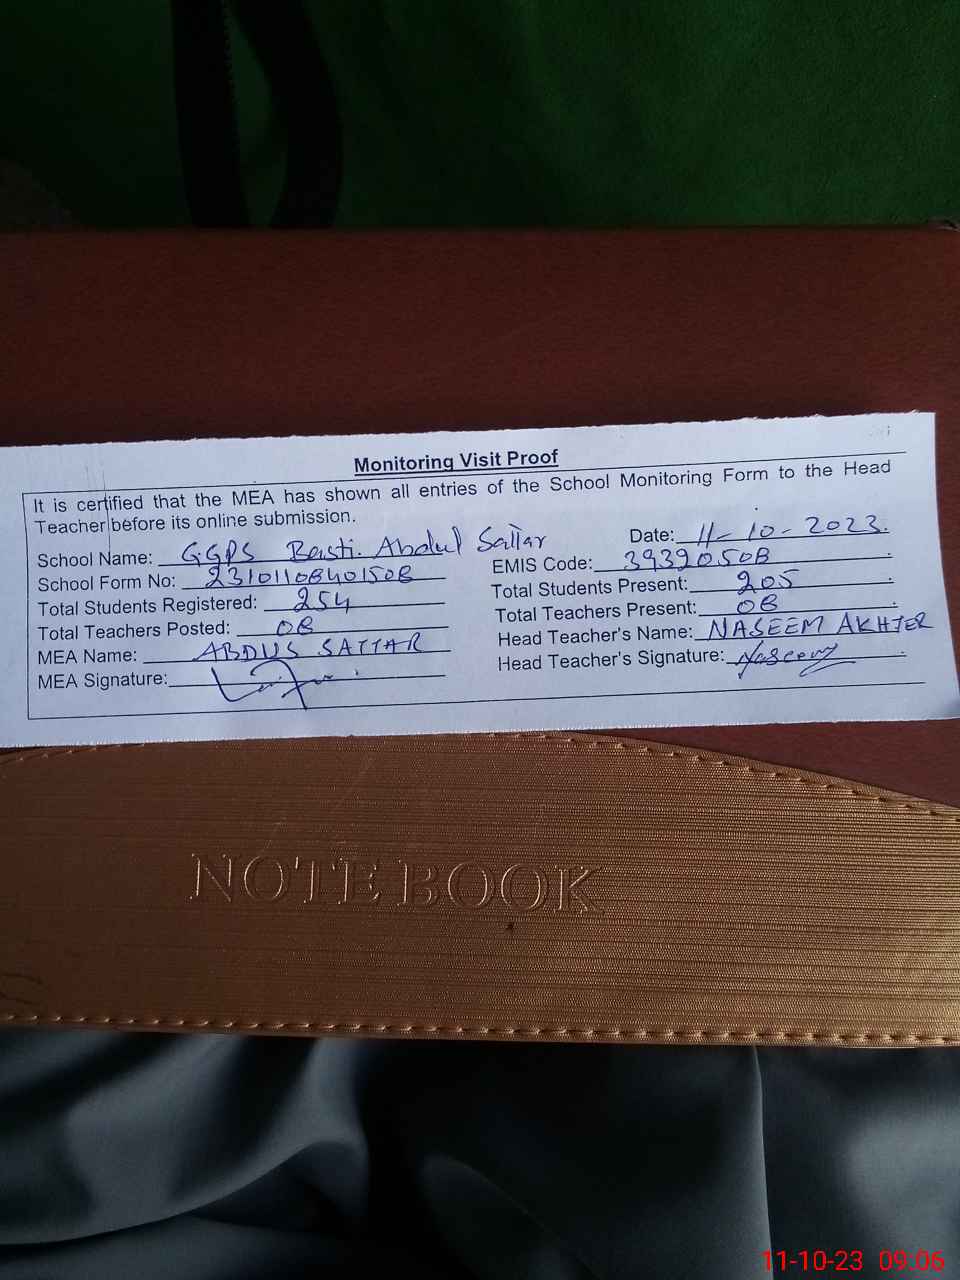 Monitoring Visit Proof
It is certified that the MEA has shown all entries of the School Monitoring Form to the Head
Teacher before its online submission.
School Name: GGPS Basti. Abdul Sattar Date: 11-10-2023.
School Form No: 23101108401508 EMIS Code: 39320508
Total Students Registered: 254 Total Students Present: 205
Total Teachers Posted: 08 Total Teachers Present: 08
MEA Name: ABDUS SATTAR Head Teacher's Name: NASEEM AKHTER
MEA Signature: Head Teacher's Signature: Naseem
NOTE BOOK
11-10-23 09:06